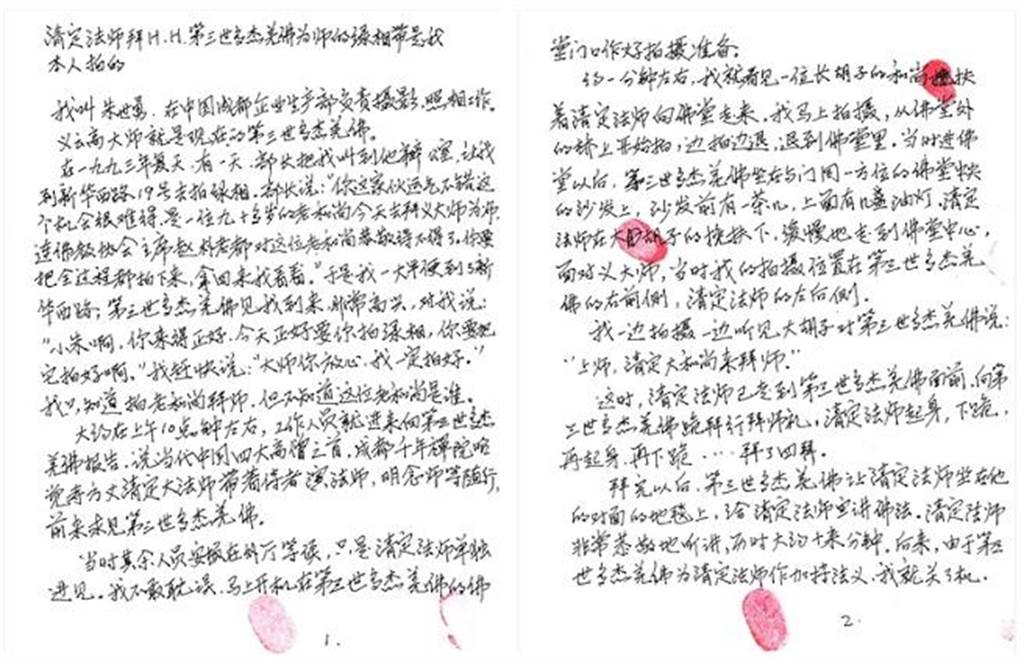 清定法师拜H.H.第三世多杰羌佛为师的录相带是我
本人拍的
我叫朱世勇，在中国成都企业生产部负责摄影、照相工作。
义云高大师就是现在的第三世多杰羌佛。
在一九九三年夏天，有一天，部长把我叫到他办公室，让我
到新华西路19号去拍录相，部长说：“你这家伙运气不错，这
个机会很难得，是一位九十多岁的老和尚今天去拜义大师为师，
连佛教协会主席赵朴老都对这位老和尚恭敬得不得了。你要
把全过程都拍下来，拿回来我看看。”于是我一大早便到了新
华西路，第三世多杰羌佛见我到来，非常高兴，对我说：
“小朱啊，你来得正好，今天正好要你拍录相，你要把
它拍好啊。”我赶快说：“大师你放心，我一定拍好。”
我只知道拍老和尚拜师，但不知道这位老和尚是谁。
大约在上午10点钟左右，工作人员就进来向第三世多杰
羌佛报告，说当代中国四大高僧之首，成都千年禅院昭
觉寺方丈清定大法师带着侍者演法师，明念师等随行，
前来求见第三世多杰羌佛。
当时其余人员安排在客厅等候，只是清定法师单独
进见。我不敢耽误，马上开机在第三世多杰羌佛的佛
1.
堂门口作好拍摄准备。
约一分钟左右，我就看见一位长胡子的和尚搀扶
着清定法师向佛堂走来，我马上拍摄，从佛堂外
的桥上开始拍，边拍边退，退到佛堂里。当时进佛
堂以后，第三世多杰羌佛坐在与门同一方位的佛堂中央
的沙发上，沙发前有一茶几，上面有几盏油灯。清定
法师在大胡子的搀扶下，缓慢地走到佛堂中心，
面对义大师，当时我的拍摄位置在第三世多杰羌
佛的右前侧，清定法师的左后侧。
我一边拍摄一边听见大胡子对第三世多杰羌佛说：
“上师，清定大和尚来拜师。”
这时，清定法师已走到第三世多杰羌佛面前，向第
三世多杰羌佛跪拜行拜师礼，清定法师起身，下跪，
再起身，再下跪……拜了四拜。
拜完以后，第三世多杰羌佛让清定法师坐在他
的对面的地毯上，给清定法师宣讲佛法。清定法师
非常恭敬地听讲，历时大约十来分钟。后来，由于第三
世多杰羌佛为清定法师作加持法义，我就关了机。
2.